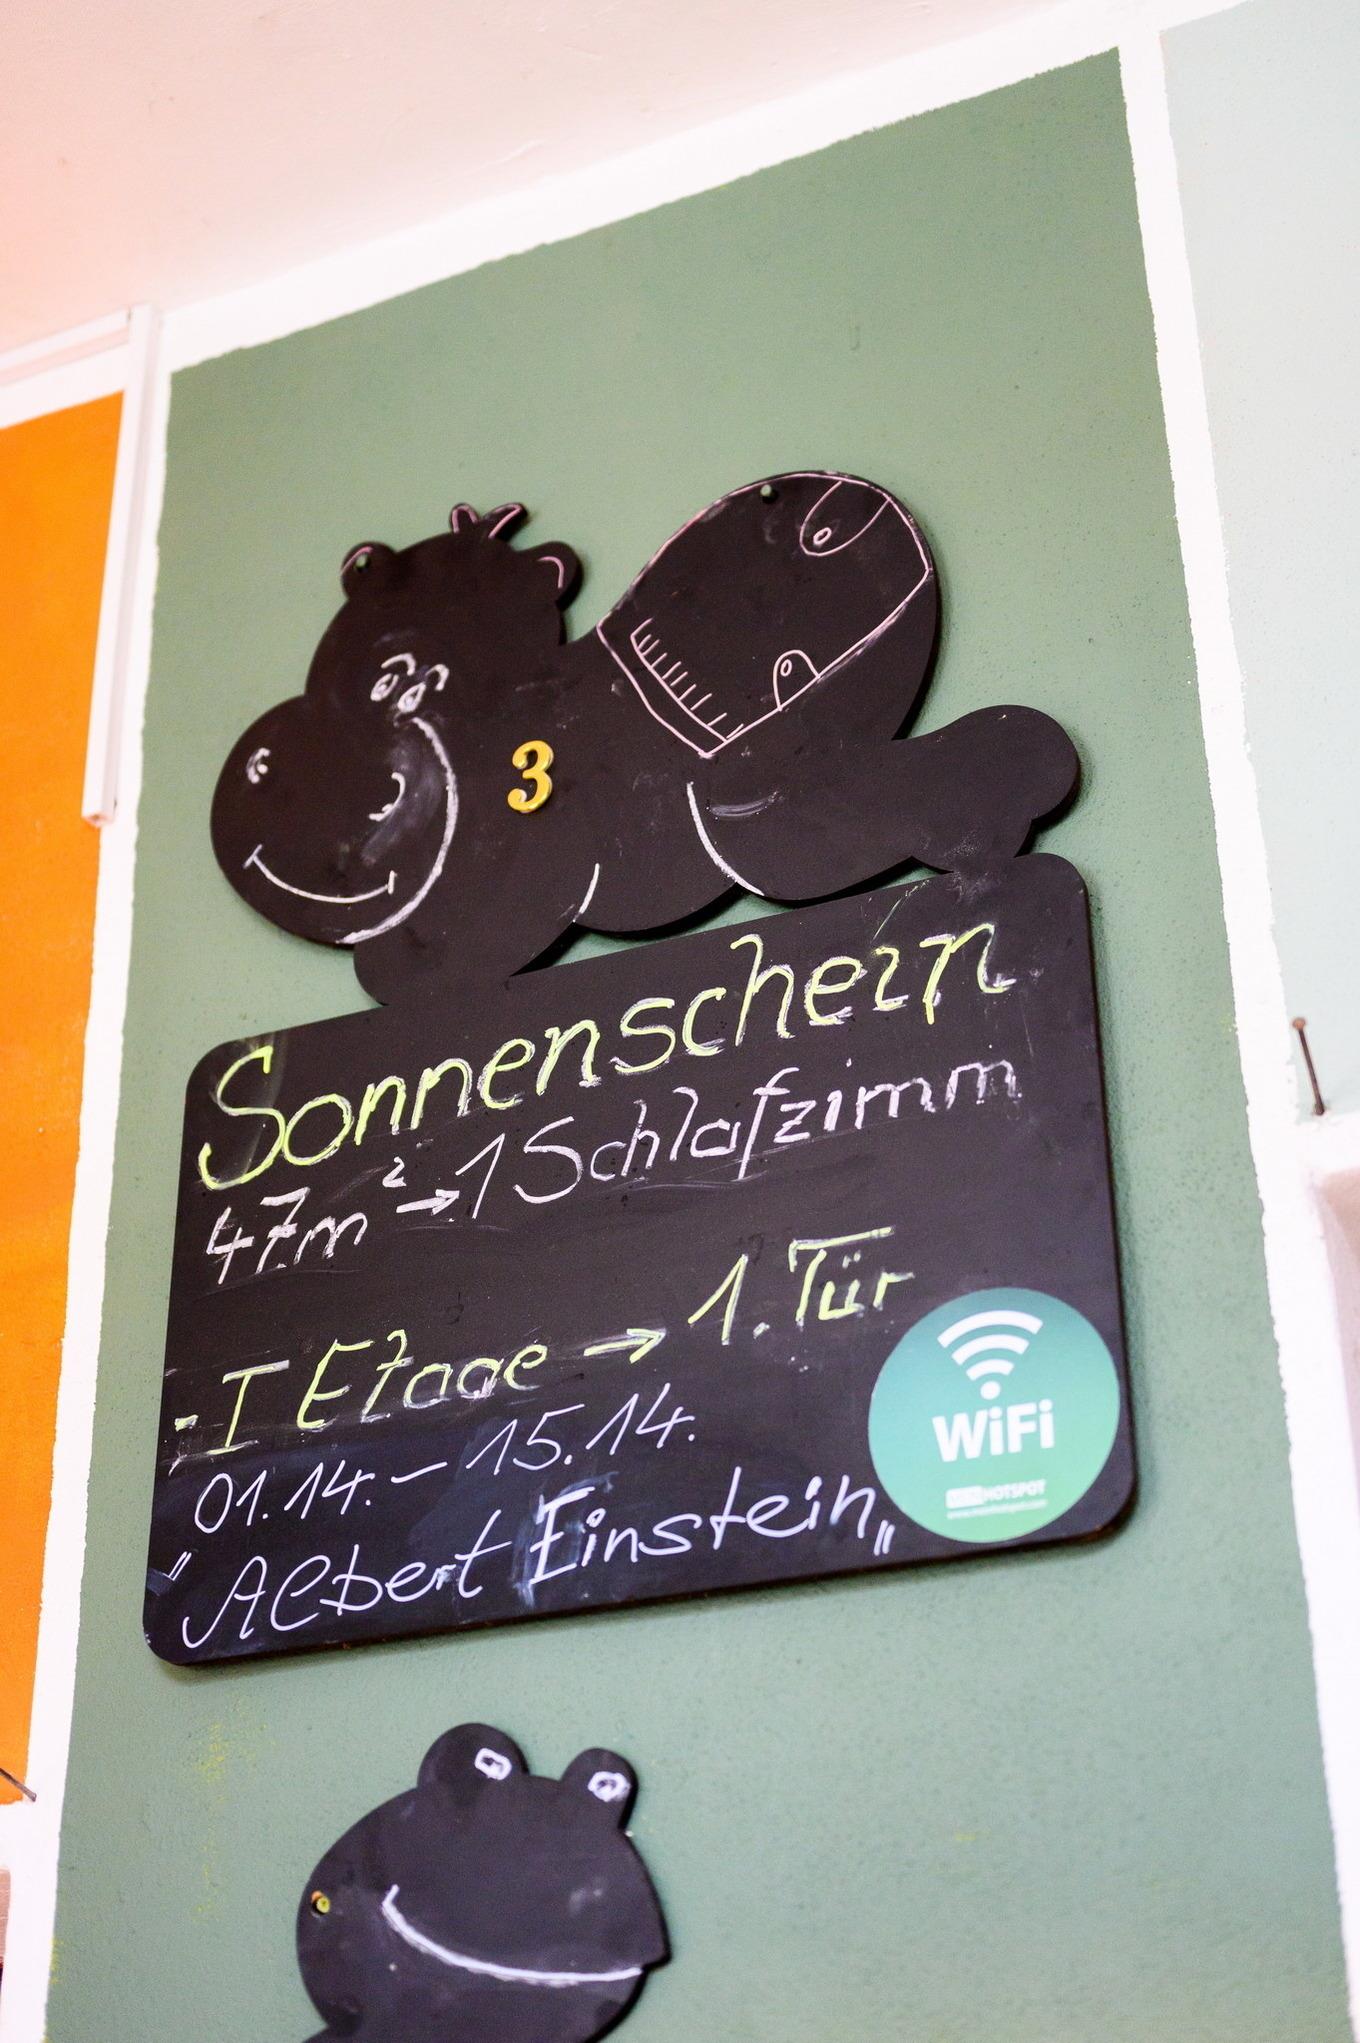 3
Sonnenschein
47m² → 1 Schlafzimm
- I Etage → 1. Tür
01.14. – 15.14.
" Albert Einstein "
WiFi
HOTSPOT